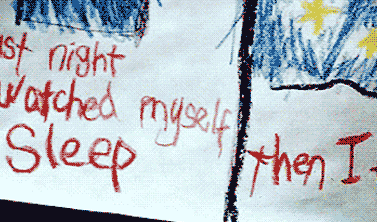 ast night
Watched myself
Sleep
then I